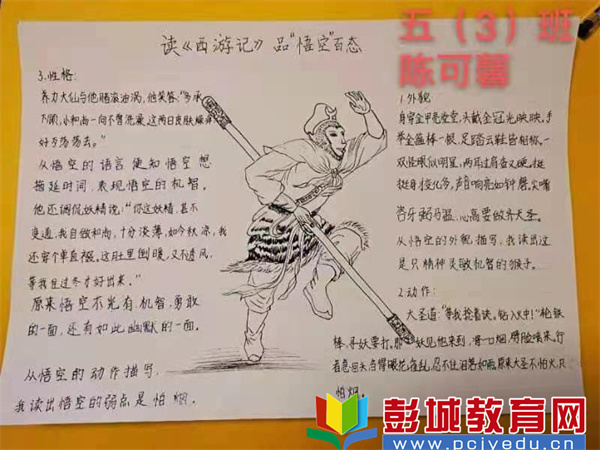 读《西游记》品"悟空"百态
五（3）班
陈可馨
3.性格：
养力大仙与他赌滚油涡，他笑答："多承
下顾，小和尚一向不曾洗澡，这两日皮肤燥痒
好歹荡荡去。"
从悟空的语言便知悟空想
拖延时间，表现悟空的机智。
他还调侃妖精说："你这妖精，甚不
变通，我自做和尚，十分淡薄，如今秋凉，我
还穿个单直裰。这肚里倒暖，又不透风，
等我住过冬才好出来。"
原来悟空不光有机智，勇敢
的一面，还有如此幽默的一面。
从悟空的动作描写，
我读出悟空的弱点是怕烟。
1.外貌
身穿金甲亮堂堂，头戴金冠光映映，手
举金箍棒一根，足踏云鞋皆相称。一
双怪眼似明星，两耳过肩查又硬。挺
挺身变化多，声音响亮如钟磬。尖嘴
咨牙弼马温，心高要做齐天圣。
从悟空的外貌描写，我读出这
是只精神灵敏机智的猴子。
2.动作：
大圣道："等我捻着诀，钻入火中！"抡铁
棒，寻妖要打，那妖见他来到，
一口烟，劈脸喷来。行
怕烟。
彭城教育网
www.pcjyedu.cn